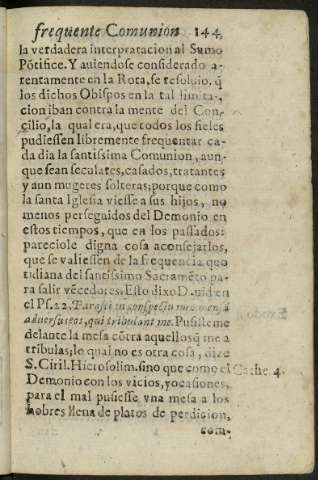 frequente Comunion 144,
la verdadera interpretacion al Sumo
Põtifice. Y auiendose considerado a-
tentamente en la Rota, se resoluio. q̃
los dichos Obispos en la tal limita-
cion iban contra la mente del Con-
cilio, la qual era, que todos los fieles
pudiessen libremente frequentar ca-
da dia la santissima Comunion, aun-
que sean seculares, casados, tratantes
y aun mugeres solteras; porque como
la santa Iglesia viesse a sus hijos, no
menos perseguidos del Demonio en
estos tiempos, que en los passados:
pareciole digna cosa aconsejarlos,
que se valiessen de la frequencia quo
tidiana del santissimo Sacramẽto pa-
ra salir vẽcedores. Esto dixo Dauid en
el Ps. 22. Parasti in conspectu meo mensã
aduersus eos, qui tribulant me. Pusisteme
delante la mesa cõtra aquellos q̃ me a
tribulas; lo qual no es otra cosa, dize
S. Ciril. Hierosolim. sino que como el Cathe. 4.
Demonio con los vicios, y ocasiones,
para el mal pusiesse vna mesa a los
hõbres llena de platos de perdicion,
com-